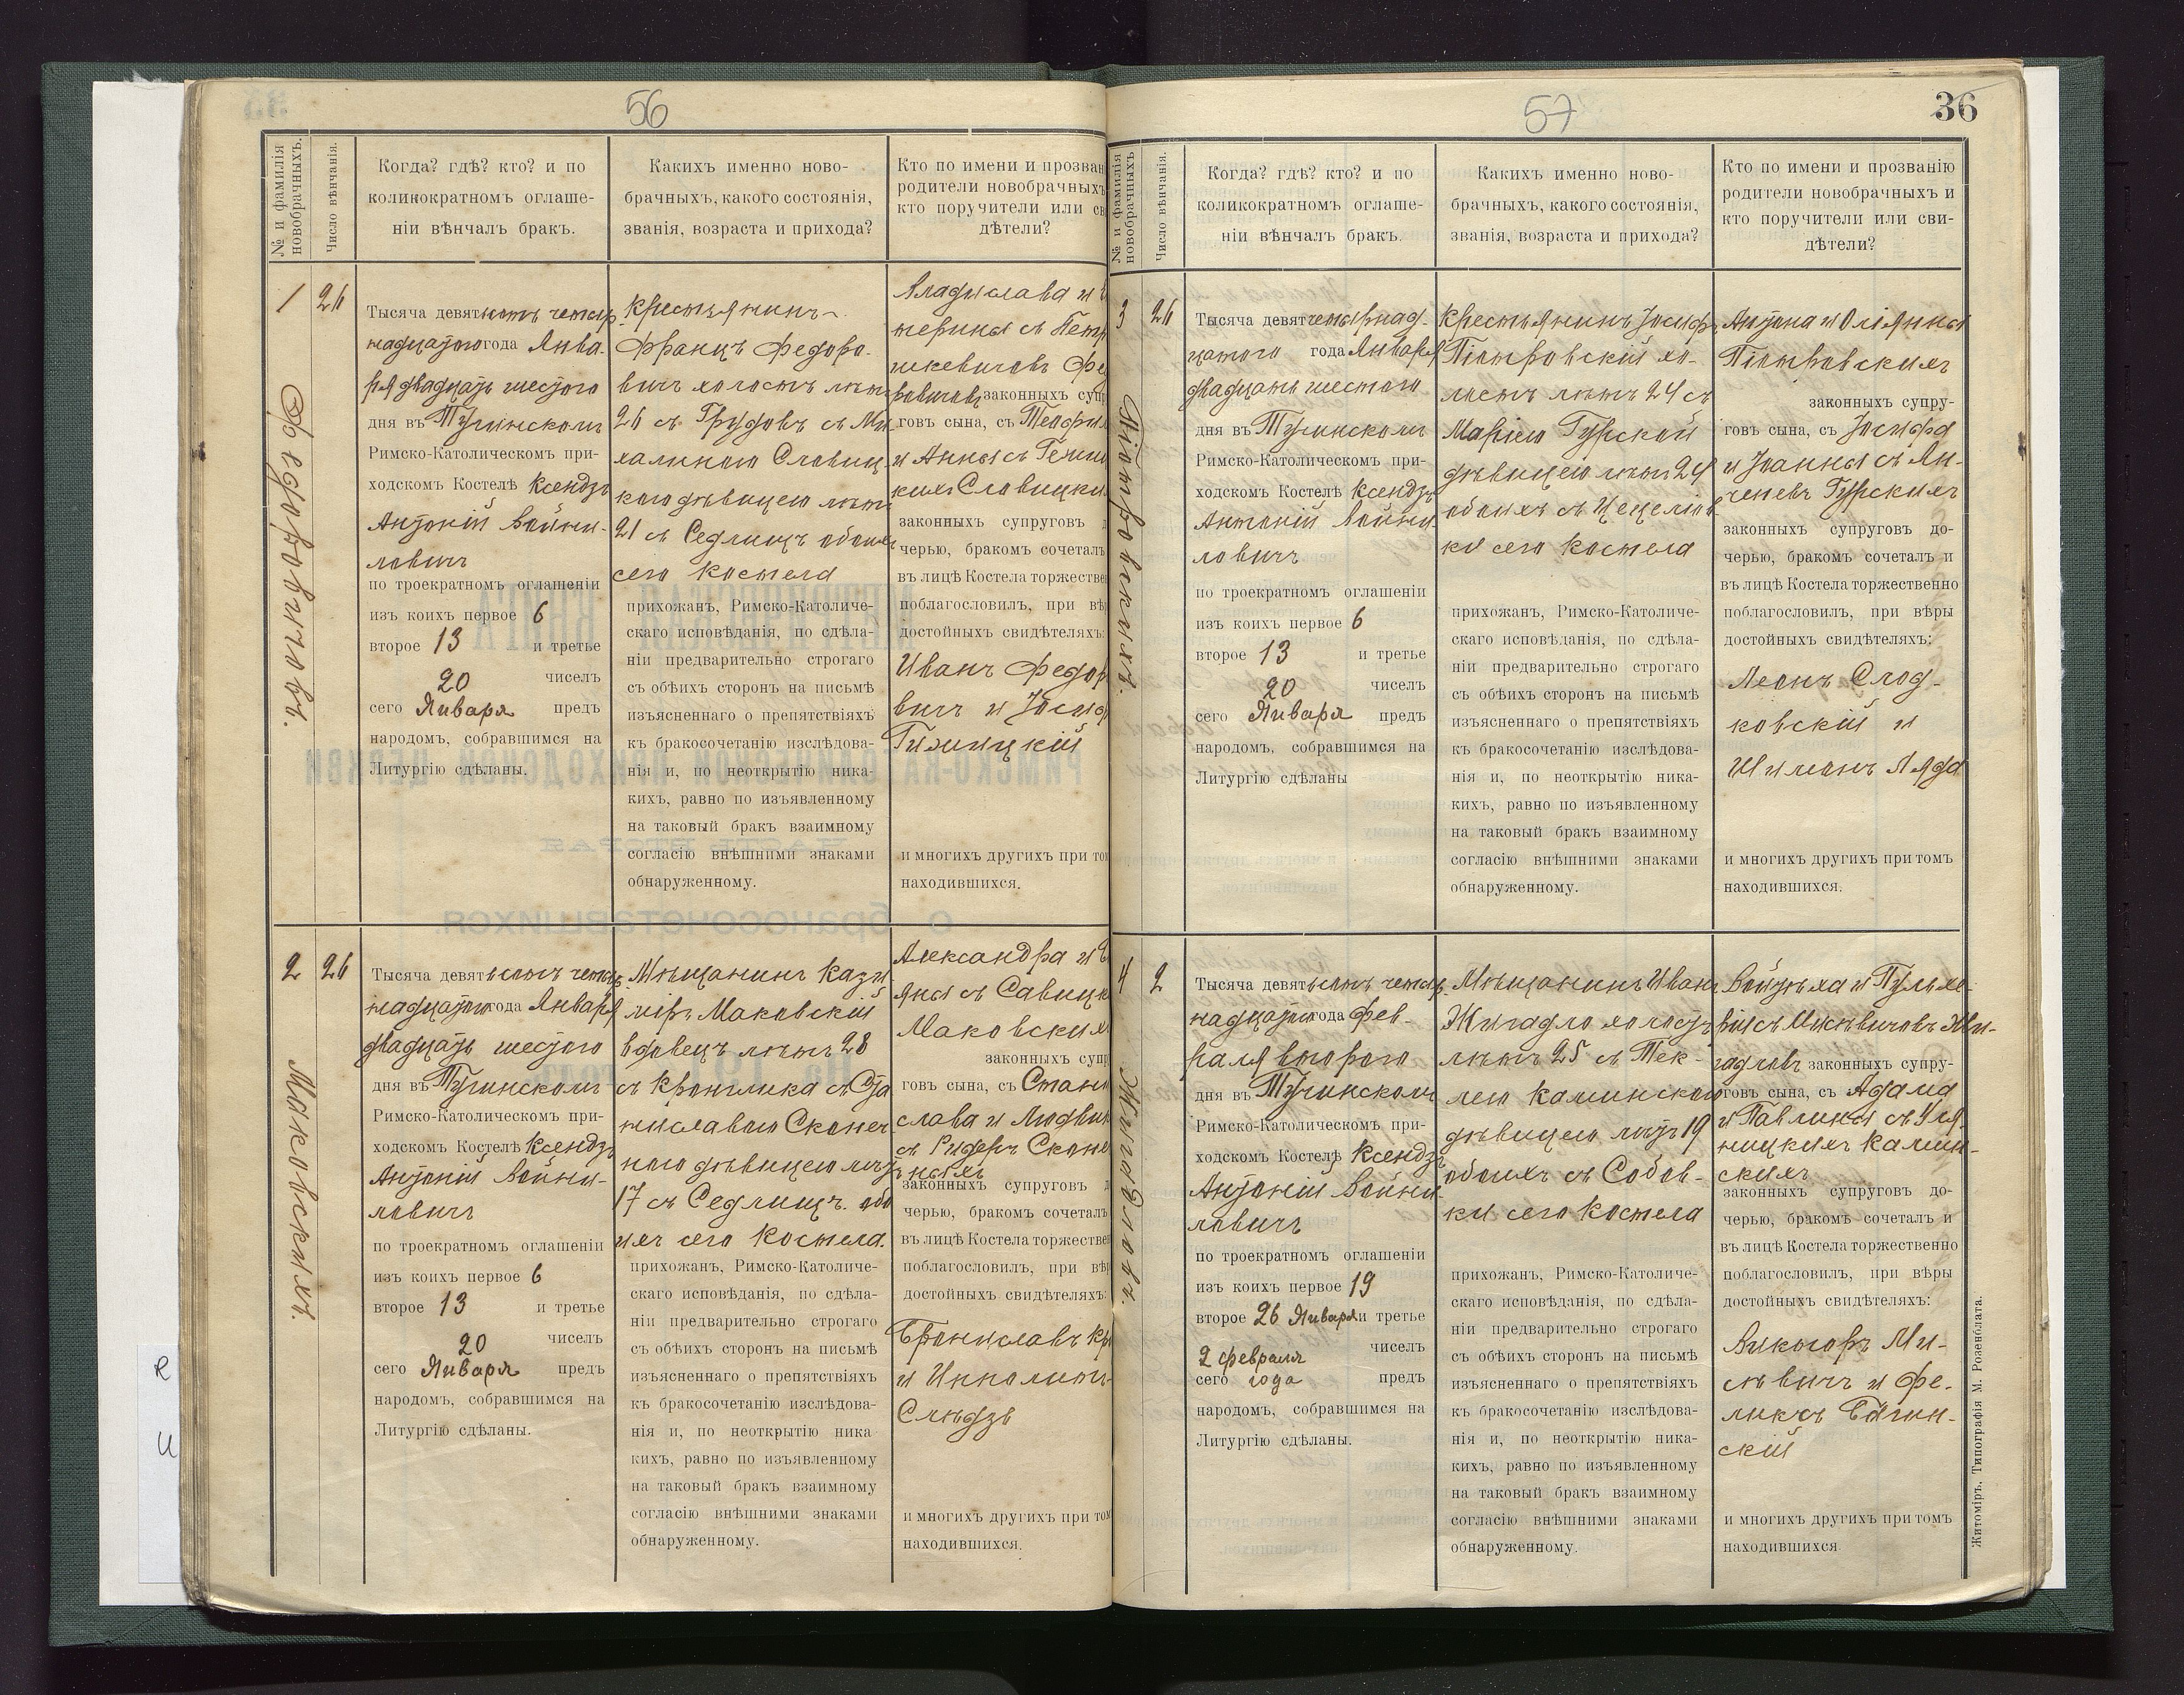 56
№ и фамилія новобрачныхъ.
Число вѣнчанія.
Когда? гдѣ? кто? и по
коликократномъ оглаше-
ніи вѣнчалъ бракъ.
Какихъ именно ново-
брачныхъ, какого состоянія,
званія, возраста и прихода?
Кто по имени и прозван
родители новобрачныхъ
кто поручители или св
дѣтели?
1
26
Федоровичовъ.
Тысяча девятьсотъ четыр
надцатого года Янва-
ря двадцать шестого
дня въ Тучинскомъ
Римско-Католическомъ при-
ходскомъ Костелѣ Ксендзъ
Антоній Войни-
ловичъ
по троекратномъ оглашеніи
изъ коихъ первое 6
второе 13 и третье
20 чиселъ
сего Января предъ
народомъ, собравшимся на
Литургію сдѣланы.
Крестьянинъ
Францъ Федоро-
вичъ холостъ лѣтъ
26 съ Грудовъ съ Ми-
халиною Словиц-
кою дѣвицею лѣтъ
21 съ Седлищъ обоихъ
сего Костела
прихожанъ, Римско-Католиче-
скаго исповѣданія, по сдѣла-
ніи предварительно строгаго
съ обѣихъ сторонъ на письмѣ
изъясненнаго о препятствіяхъ
къ бракосочетанію изслѣдова-
нія и, по неоткрытію ника-
кихъ, равно по изъявленному
на таковый бракъ взаимному
согласію внѣшними знаками
обнаруженному.
Владислава и
терины съ Петр
шкевичовъ Фе
ровичовъ законныхъ супр
говъ сына, съ Теофил
и Анны съ
кихъ Словицки
законныхъ супруговъ д
черью, бракомъ сочеталъ
въ лицѣ Костела торжестве
поблагословилъ, при вѣр
достойныхъ свидѣтеляхъ:
Иванъ Федор
вичъ и Іосиф
и многихъ другихъ при том
находившихся.
2
26
Маковскихъ.
Тысяча девятьсотъ четыр
надцатого года Января
двадцать шестого
дня въ Тучинскомъ
Римско-Католическомъ при-
ходскомъ Костелѣ Ксендзъ
Антоній Войни-
ловичъ
по троекратномъ оглашеніи
изъ коихъ первое 6
второе 13 и третье
20 чиселъ
сего Января предъ
народомъ, собравшимся на
Литургію сдѣланы.
Мѣщанинъ Кази
міръ Маковскій
вдовецъ лѣтъ 28
съ Кронглика съ Ста
ниславою Сконеч
ною дѣвицею лѣтъ
17 съ Седлищъ обо
ихъ сего Костела.
прихожанъ, Римско-Католиче-
скаго исповѣданія, по сдѣла-
ніи предварительно строгаго
съ обѣихъ сторонъ на письмѣ
изъясненнаго о препятствіяхъ
къ бракосочетанію изслѣдова-
нія и, по неоткрытію ника
кихъ, равно по изъявленному
на таковый бракъ взаимному
согласію внѣшними знаками
обнаруженному.
Александра и
яны съ Савицк
Маковских
законныхъ супр
говъ сына, съ Стани
слава и Людвик
съ Ридеръ Сконе
чныхъ
законныхъ супруговъ д
черью, бракомъ сочеталъ
въ лицѣ Костела торжестве
поблагословилъ, при вѣр
достойныхъ свидѣтеляхъ:
Брониславъ Кр
и Ипполитъ
Слѣдзь
и многихъ другихъ при том
находившихся.
57
36
№ и фамилія новобрачныхъ
Число вѣнчанія.
Когда? гдѣ? кто? и по
коликократномъ оглаше-
ніи вѣнчалъ бракъ.
Какихъ именно ново-
брачныхъ, какого состоянія,
званія, возраста и прихода?
Кто по имени и прозванію
родители новобрачныхъ и
кто поручители или сви-
дѣтели?
3
26
Піотровскихъ.
Тысяча девятчетырнад-
цатого года Января
двадцать шестого
дня въ Тучинскомъ
Римско-Католическомъ при-
ходскомъ Костелѣ Ксендзъ
Антоній Войни-
ловичъ
по троекратномъ оглашеніи
изъ коихъ первое 6
второе 13 и третье
20 чиселъ
сего Января предъ
народомъ, собравшимся на
Литургію сдѣланы
Крестьянинъ Іосифъ
Піотровскій хо-
лостъ лѣтъ 24 съ
Маріею Гурской
дѣвицею лѣтъ 24
обоихъ съ Цецеліов-
ки сего Костела
прихожанъ, Римско-Католиче-
скаго исповѣданія, по сдѣла-
ніи предварительно строгаго
съ обѣихъ сторонъ на письмѣ
изъясненнаго о препятствіяхъ
къ бракосочетанію изслѣдова-
нія и, по неоткрытію ника-
кихъ, равно по изъявленному
на таковый бракъ взаимному
согласію внѣшними знаками
обнаруженному.
Антона и Оліянны
Піотровскихъ
законныхъ супру-
говъ сына, съ Іосифа
и Іоанны съ Ян-
ченевъ Гурскихъ
законныхъ супруговъ до-
черью, бракомъ сочеталъ и
въ лицѣ Костела торжественно
поблагословилъ, при вѣры
достойныхъ свидѣтеляхъ:
Леонъ Слод-
ковскій и
Шимонъ Ляда
и многихъ другихъ при томъ
находившихся.
4
2
Жигадловъ.
Тысяча девятьсотъ четыр
надцатого года Фев-
раля второго
дня въ Тучинскомъ
Римско-Католическомъ при-
ходскомъ Костелѣ Ксендзъ
Антоній Войни-
ловичъ
по троекратномъ оглашеніи
изъ коихъ первое 19
второе 26 Января и третье
2 февраля чиселъ
сего года предъ
народомъ, собравшимся на
Литургію сдѣланы.
Мѣщанинъ Иванъ
Жигадло холостъ
лѣтъ 25 съ Тек-
лею Каминскою
дѣвицею лѣтъ 19
обоихъ съ Собов-
ки сего Костела
прихожанъ, Римско-Католиче-
скаго исповѣданія, по сдѣла-
ніи предварительно строгаго
съ обѣихъ сторонъ на письмѣ
изъясненнаго о препятствіяхъ
къ бракосочетанію изслѣдова-
нія и, по неоткрытію ника-
кихъ, равно по изъявленному
на таковый бракъ взаимному
согласію внѣшними знаками
обнаруженному.
Войцѣха и Пульхе-
ріи съ Мисѣвичовъ Жи-
гадловъ законныхъ супру-
говъ сына, съ Адама
и Павлины съ Уля-
ницкихъ Камин-
скихъ
законныхъ супруговъ до-
черью, бракомъ сочеталъ и
въ лицѣ Костела торжественно
поблагословилъ, при вѣры
достойныхъ свидѣтеляхъ:
Викторъ Ми-
сѣвичъ и Фе-
ликсъ Багин-
скій
и многихъ другихъ при томъ
находившихся
Житоміръ, Типографія М. Розенблата.